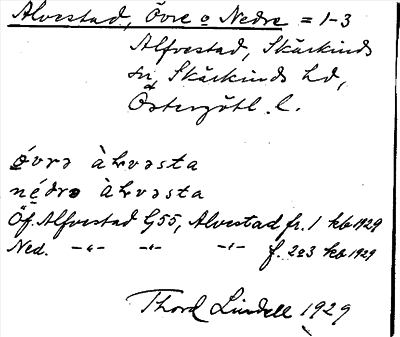 Alvestad, Övre o Nedre = 1-3
Alfvestad, Skärkinds
sn, Skärkinds hd,
Östergötl. l.
övrə àlvəsta
nédrə àlvəsta
Öf. Alfvestad G55, Alvestad fr. 1 kb 1929
Ned. -"- -"- -"- f. 2o3 kb 1929
Thord Lindell 1929